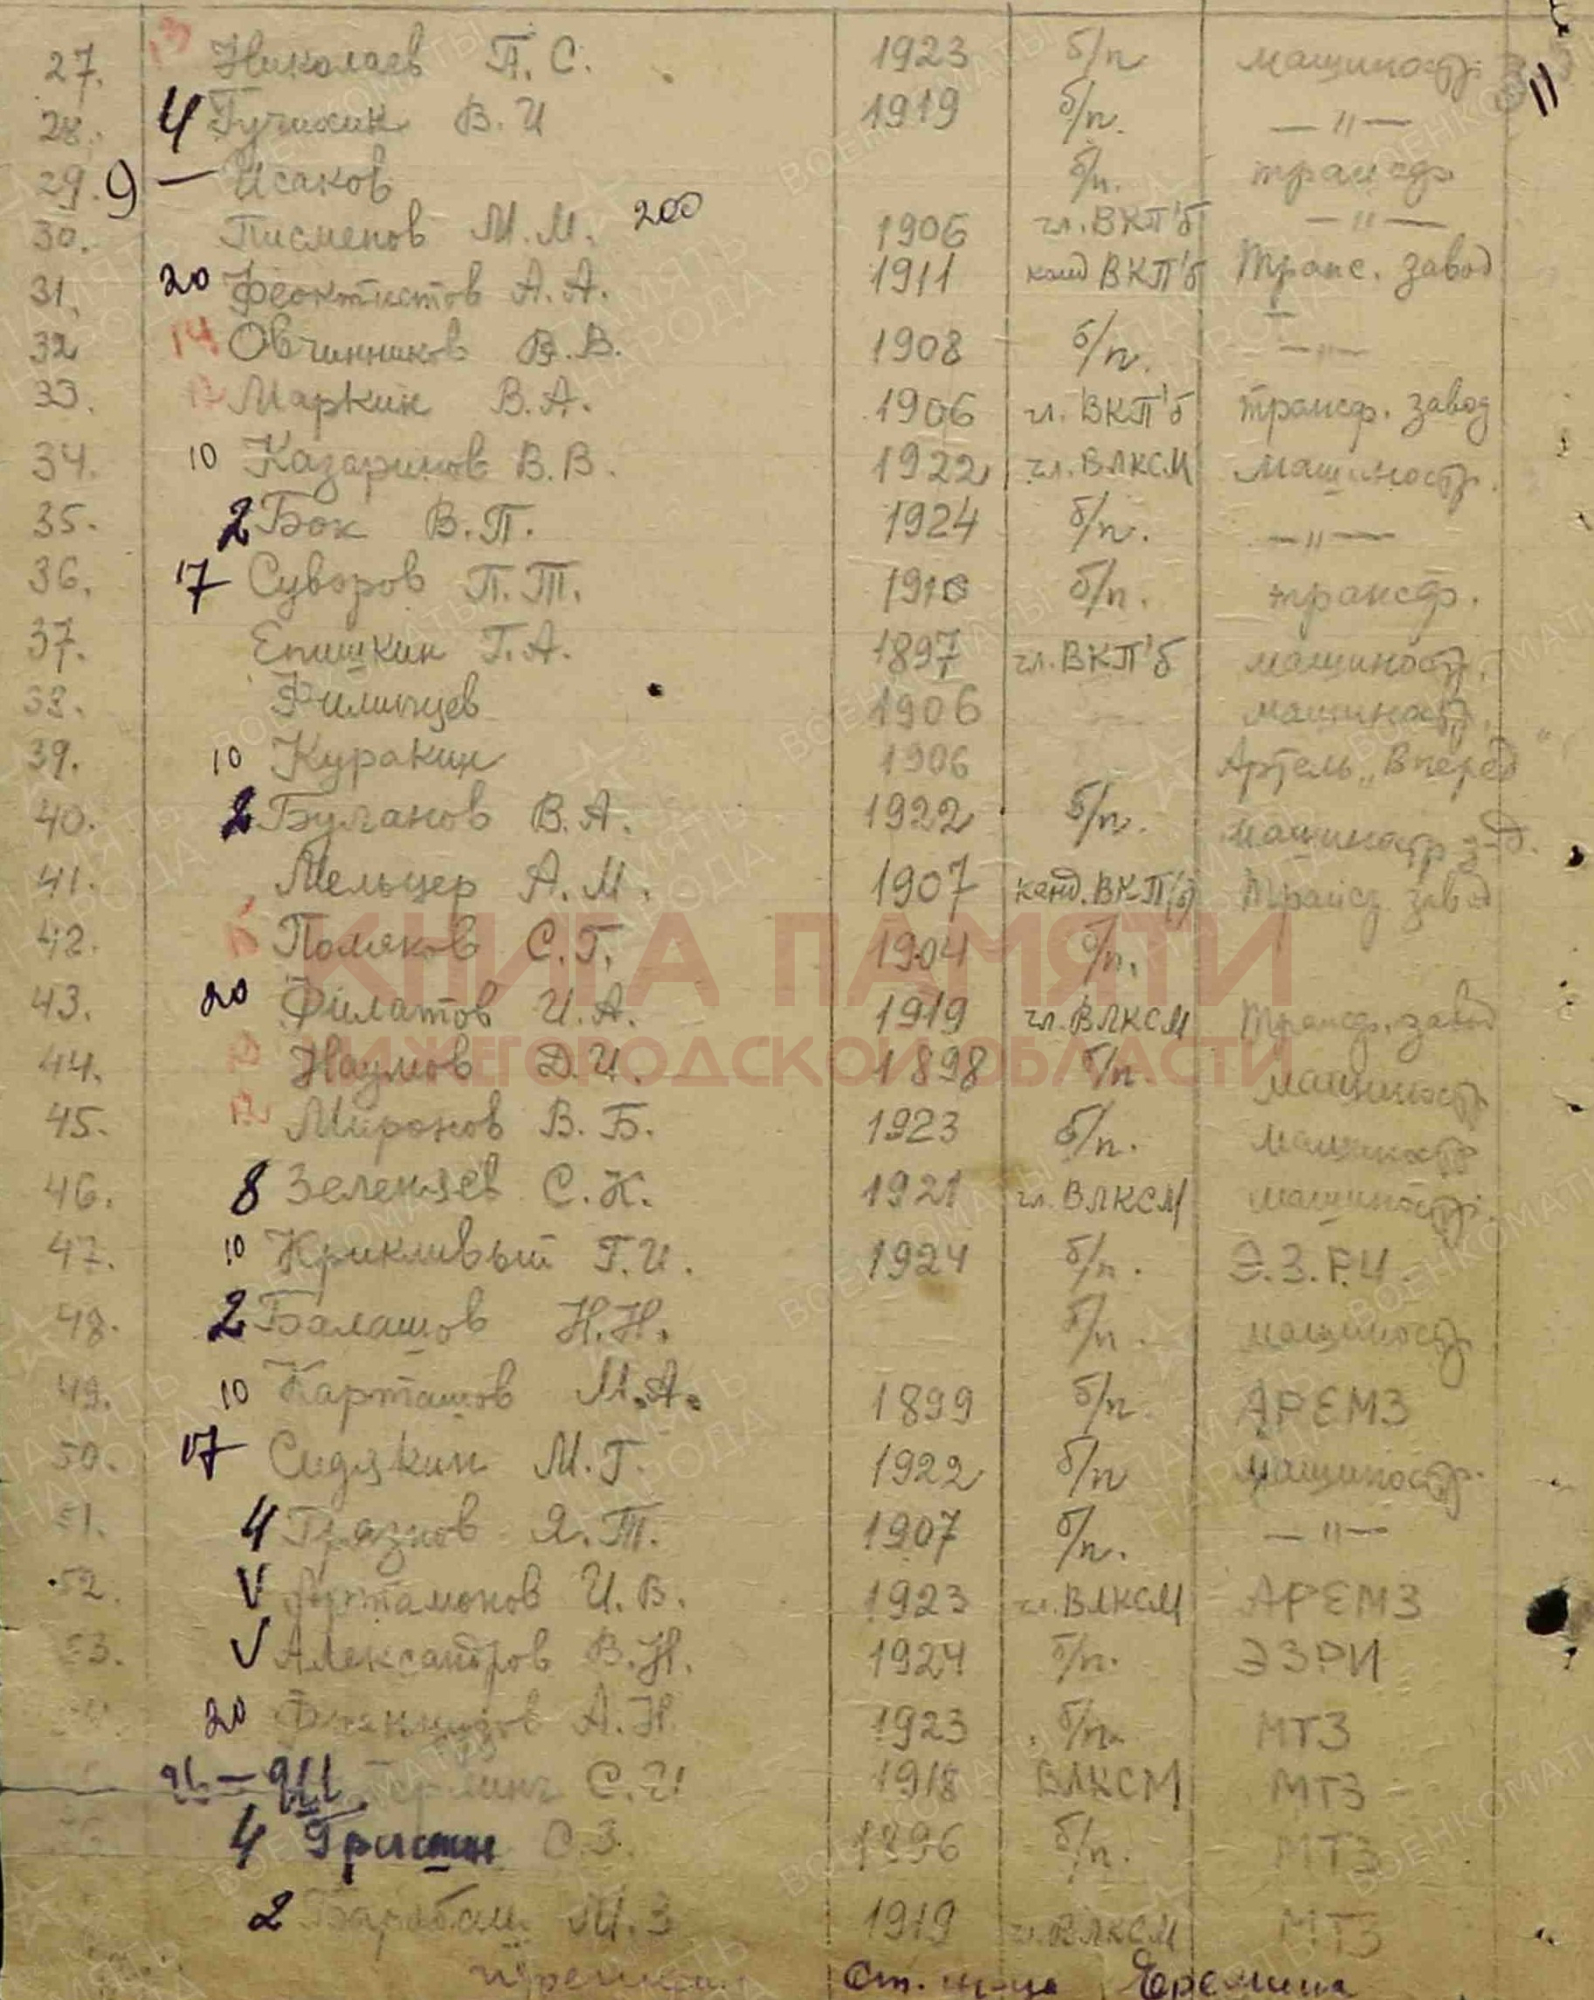 27. 13 Николаев П. С. 1923 б/п машиностр.
28. 4 Гучихин В. И 1919 б/п. —"— 11
29. 9 — Исаков б/п. трансф.
30. Писменов М. М. 200 1906 чл. ВКП'б —"—
31. 20 Феоктистов А. А. 1911 канд ВКП'б Транс. завод
32 14 Овчинников В. В. 1908 б/п. —"—
33. Маркин В. А. 1906 чл. ВКП'б трансф. завод
34. 10 Казаринов В. В. 1922 чл. ВЛКСМ машиностр.
35. 2 Бок В. П. 1924 б/п. —"—
36. 17 Суворов П. Т. б/п. трансф.
37. Епишкин Г. А. 1897 чл. ВКП'б машиностр.
38. 1906 машиностр.
39. 10 Куракин 1906 Артель „Вперед"
40. 2 Буланов В. А. 1922 б/п. машиностр з-д.
41. Мельцер А. М. 1907 канд. ВКП(б) Трансф завод
42. Поляков С. Г. 1904 б/п.
43. 20 Филатов И. А. 1919 чл. ВЛКСМ Трансф. завод
44. Наумов Д. И. 1898 б/п. машиностр
45. Миронов В. Б. 1923 б/п. машиностр
46. 8 С. К. 1921 чл. ВЛКСМ машиностр.
47. 10 Крикливый Г. И. 1924 б/п. Э.З.Р.И.
48. 2 Балашов Н. Н. б/п. машиностр
49. 10 Карташов М. А. 1899 б/п. АРЕМЗ
50. 17 Сидякин М. Г. 1922 б/п машиностр.
51. 4 Грязнов Я. Т. 1907 б/п. —"—
52. V Артамонов И. В. 1923 чл. ВЛКСМ АРЕМЗ
53. V Александров В. Н. 1924 б/п. ЭЗРИ
20 А. Н. 1923 б/п. МТЗ
С. И 1918 ВЛКСМ МТЗ
4 Гришин С. З. 1896 б/п. МТЗ
2 Барабаш М. З 1919 чл. ВЛКСМ МТЗ
Ст. Еремина
КНИГА ПАМЯТИ
НИЖЕГОРОДСКОЙ ОБЛАСТИ